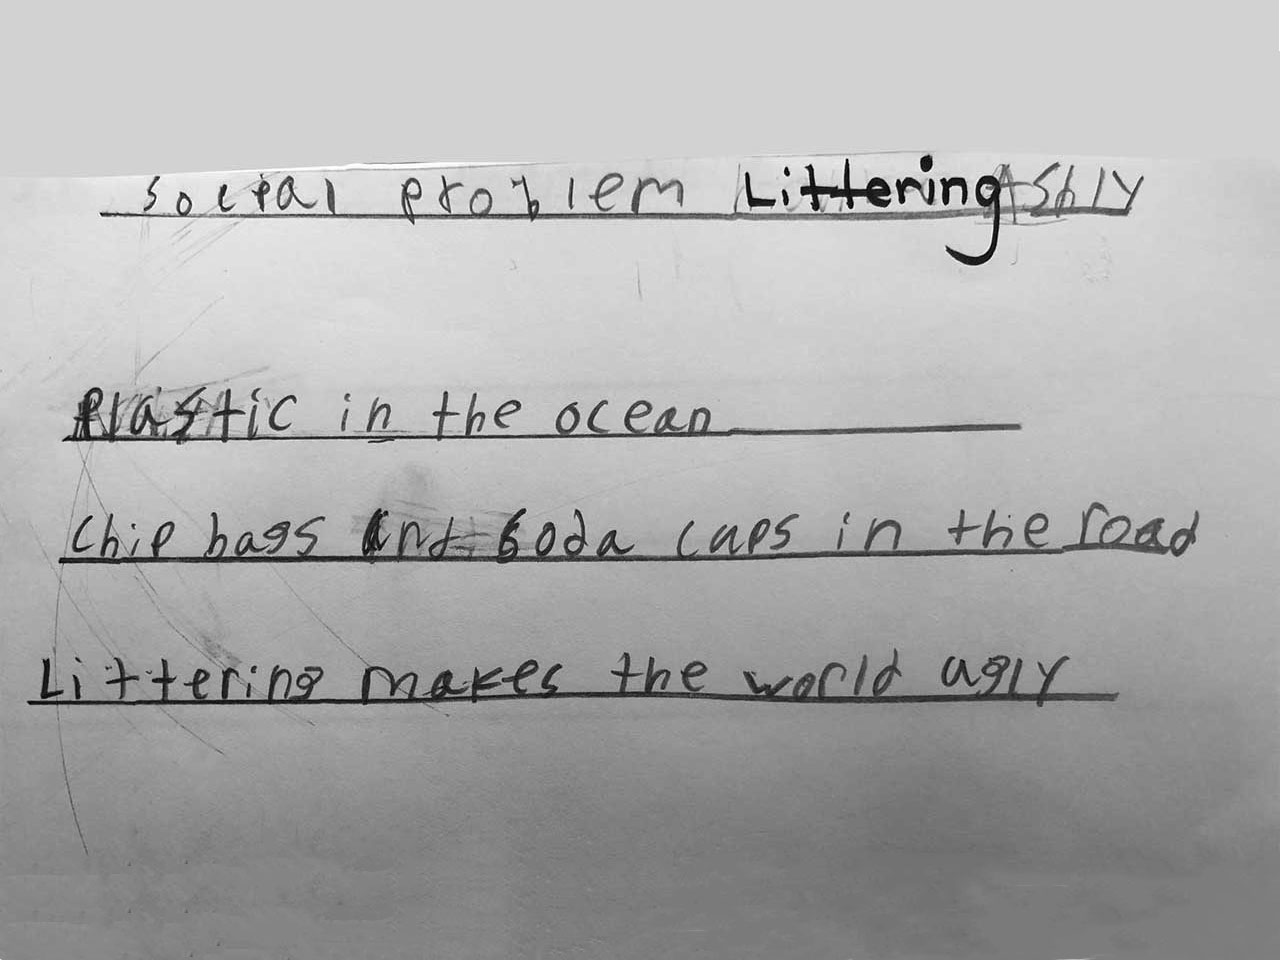 social problem Littering Ashly
Plastic in the ocean
Chip bags and soda caps in the road
Littering makes the world ugly